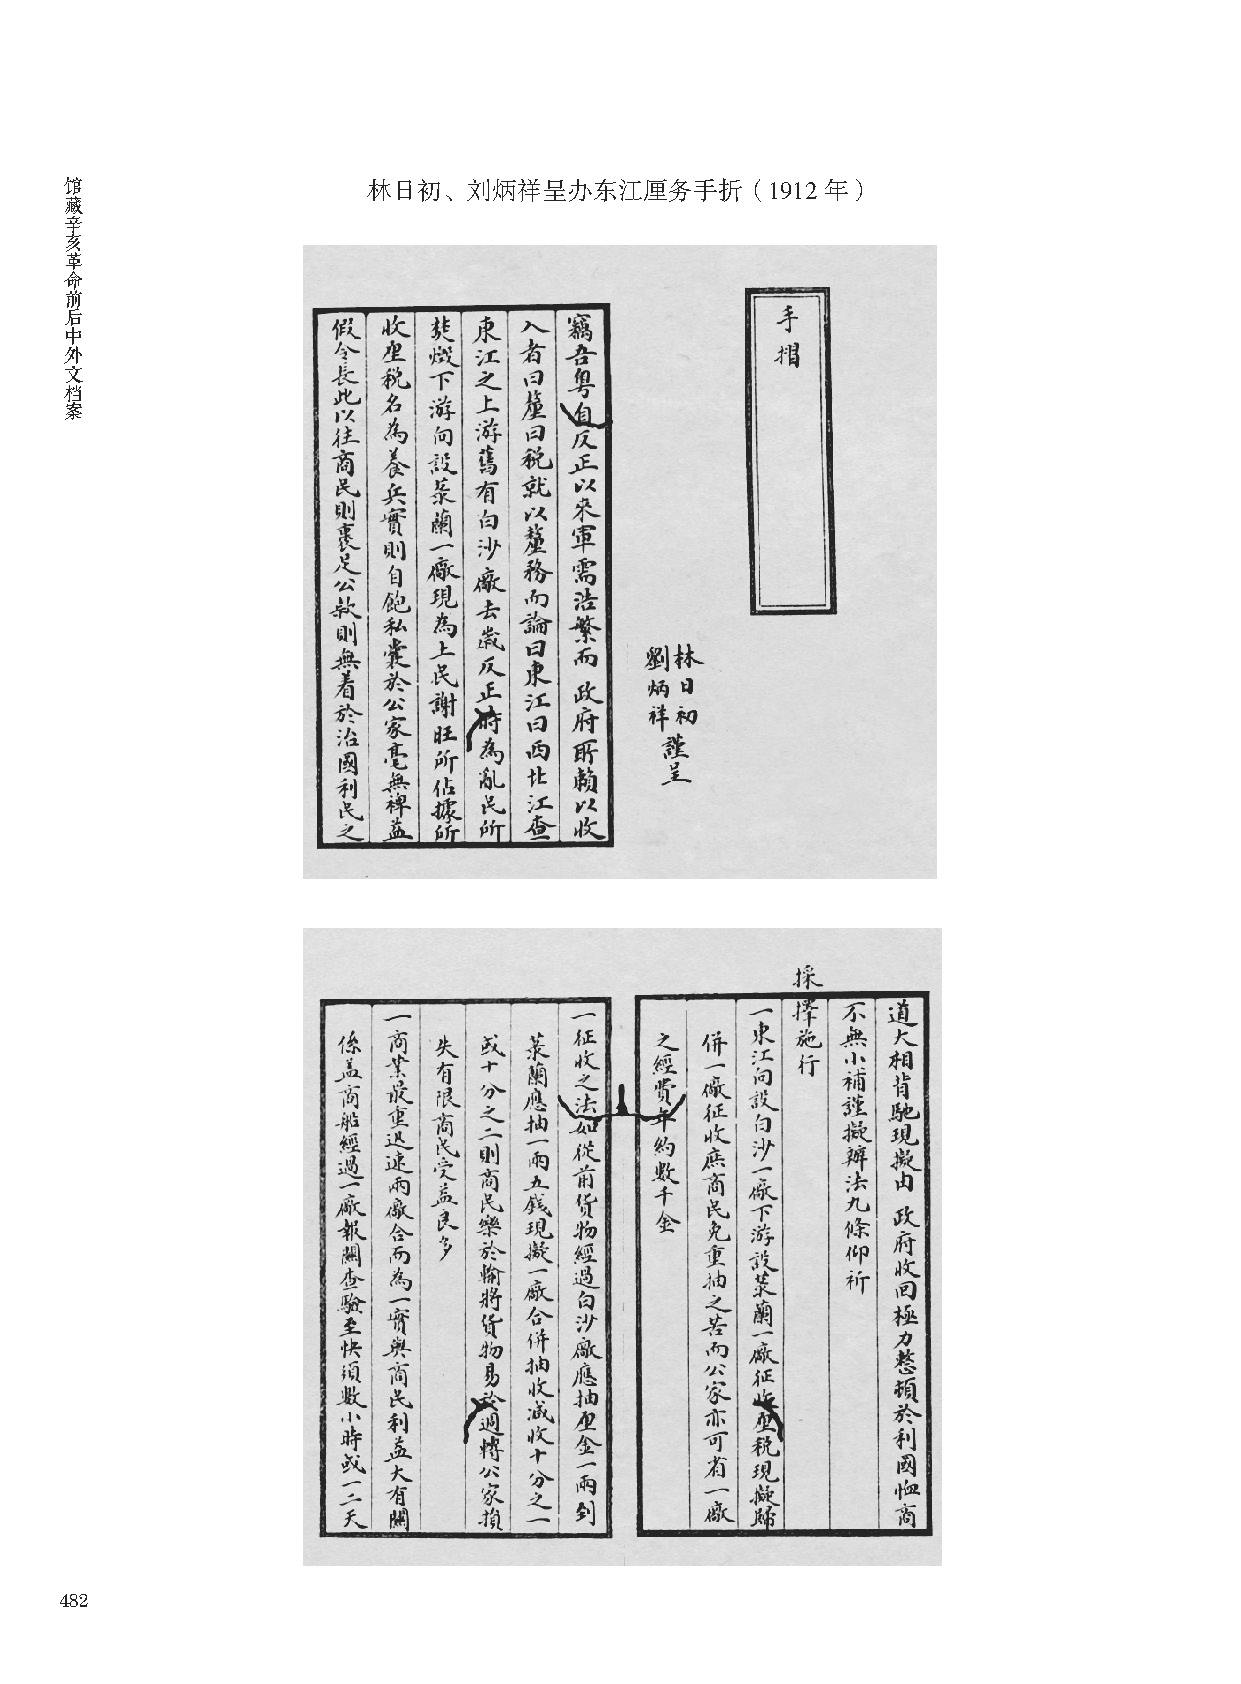 馆藏辛亥革命前后中外文档案
林日初、刘炳祥呈办东江厘务手折（1912 年）
手摺
林日初
劉炳祥
謹呈
竊吾粤自反正以來軍需浩繁而 政府所賴以收
入者曰釐曰税就以釐務而論曰東江曰西北江查
東江之上游舊有白沙廠去歲反正時為亂民所
焚燬下游向設菉蘭一廠現為土民謝旺所佔據所
收厘税名為養兵實則自飽私囊於公家毫無裨益
假令長此以往商民則裹足公款則無着於治國利民之
道大相背馳現擬由 政府收回極力整頓於利國恤商
不無小補謹擬辦法九條仰祈
採擇施行
一東江向設白沙一廠下游設菉蘭一廠征收厘税現擬歸
併一廠征收庶商民免重抽之苦而公家亦可省一廠
之經費年約數千金
一征收之法如從前貨物經過白沙廠應抽厘金一兩到
菉蘭應抽一兩五錢現擬一廠合併抽收減收十分之一
或十分之二則商民樂於輸將貨物易於週轉公家損
失有限商民受益良多
一商業最重迅速兩廠合而為一實與商民利益大有關
係盖商船經過一廠報關查驗至快須數小時或一二天
482